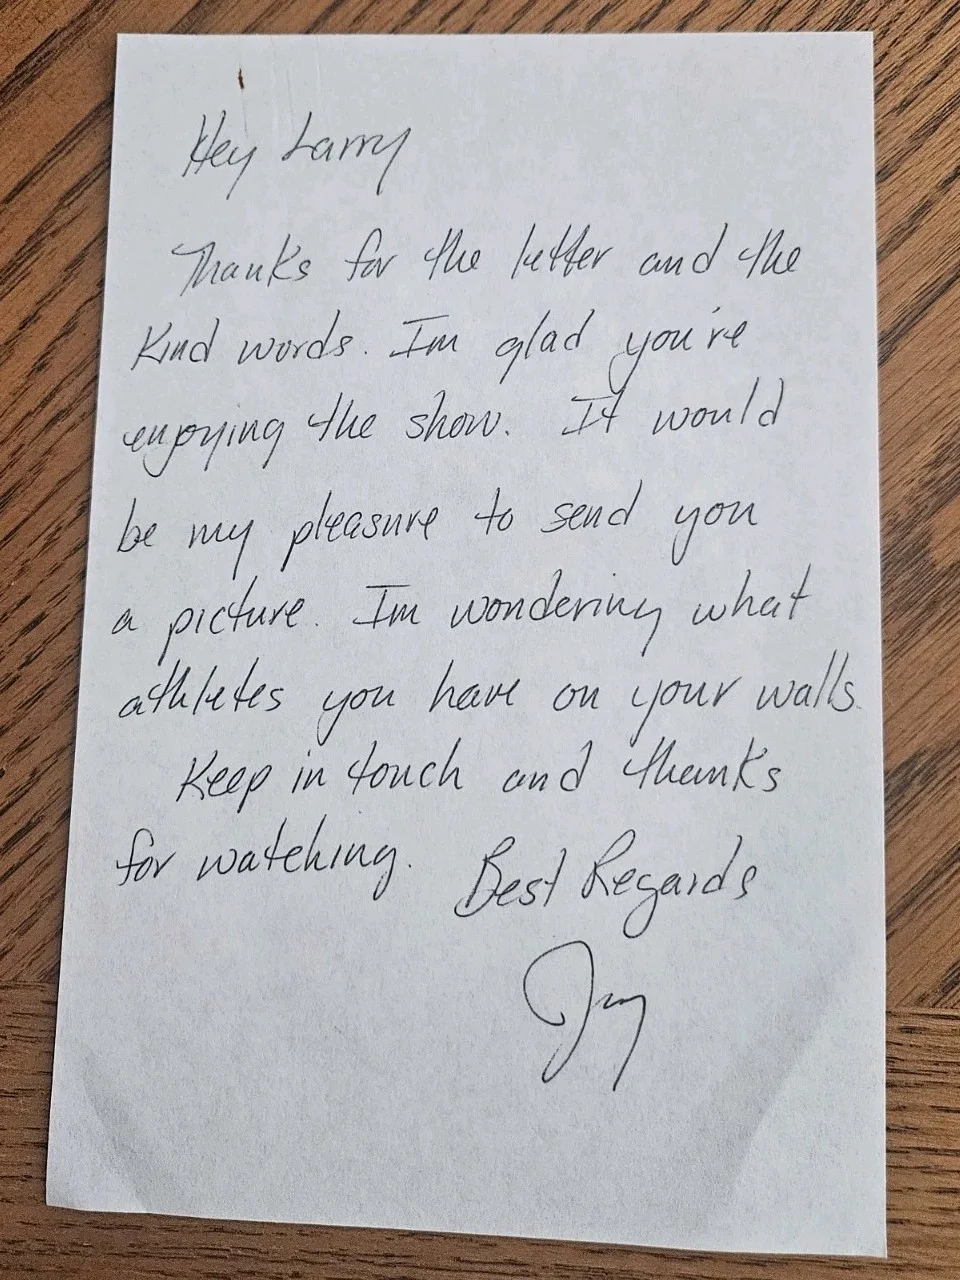 Hey Larry
Thanks for the letter and the
kind words. Im glad you're
enjoying the show. It would
be my pleasure to send you
a picture. Im wondering what
athletes you have on your walls.
Keep in touch and thanks
for watching.
Best Regards